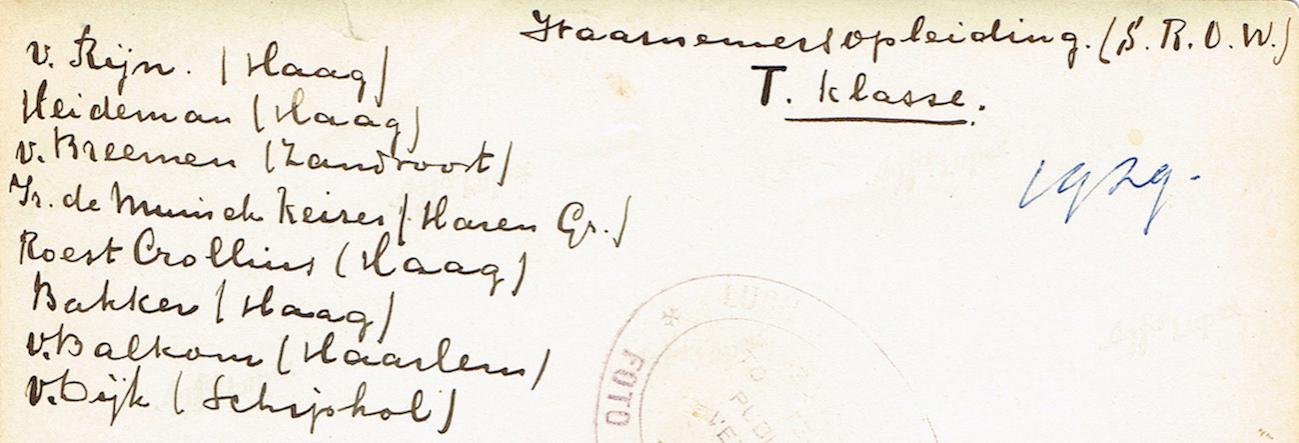 Waarnemersopleiding. (S.R.O.W.)
T. klasse.
1929.
v. Rijn. (Haag)
Heideman (Haag)
v. Breemen (Zandvoort)
Ir. de Muinck Keizer (Haren Gr.)
Roest Crollius (Haag)
Bakker (Haag)
v. Balkom (Haarlem)
v. Dijk (Schiphol)
FOTO